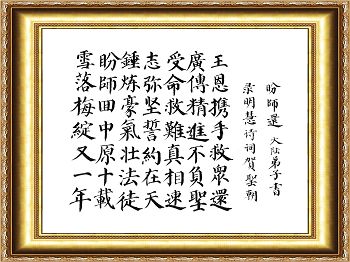 盼師還 大陆弟子書
录明慧诗词賀聖朝
王恩携手救眾還
廣傳精進不負聖
受命救難真相速
志弥坚誓約在天
錘炼豪氣壮法徒
盼師田中原十載
雪落梅綻又一年